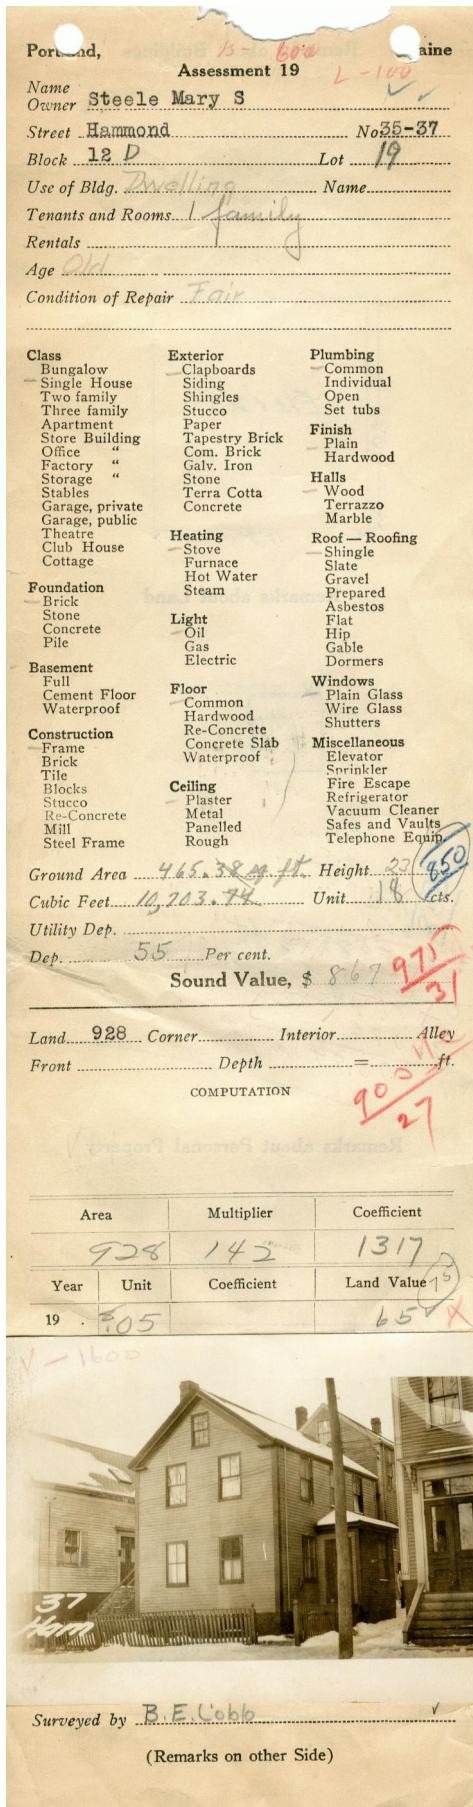 B- 600
Portland, Maine
Assessment 19
L-100
Name
Owner Steele Mary S
Street Hammond No 35-37
Block 12 D Lot 19
Use of Bldg. Dwelling Name
Tenants and Rooms 1 family
Rentals
Age Old
Condition of Repair Fair
Class
Bungalow
Single House
Two family
Three family
Apartment
Store Building
Office "
Factory "
Storage "
Stables
Garage, private
Garage, public
Theatre
Club House
Cottage
Foundation
Brick
Stone
Concrete
Pile
Basement
Full
Cement Floor
Waterproof
Construction
Frame
Brick
Tile
Blocks
Stucco
Re-Concrete
Mill
Steel Frame
Exterior
Clapboards
Siding
Shingles
Stucco
Paper
Tapestry Brick
Com. Brick
Galv. Iron
Stone
Terra Cotta
Concrete
Heating
Stove
Furnace
Hot Water
Steam
Light
Oil
Gas
Electric
Floor
Common
Hardwood
Re-Concrete
Concrete Slab
Waterproof
Ceiling
Plaster
Metal
Panelled
Rough
Plumbing
Common
Individual
Open
Set tubs
Finish
Plain
Hardwood
Halls
Wood
Terrazzo
Marble
Roof — Roofing
Shingle
Slate
Gravel
Prepared
Asbestos
Flat
Hip
Gable
Dormers
Windows
Plain Glass
Wire Glass
Shutters
Miscellaneous
Elevator
Sprinkler
Fire Escape
Refrigerator
Vacuum Cleaner
Safes and Vaults
Telephone Equip.
Ground Area 465.38 sq. ft. Height 23
850
Cubic Feet 10,703.74 Unit 18 cts.
Utility Dep.
Dep. 55 Per cent.
Sound Value, $ 867
971
31
Land 928 Corner Interior Alley
Front Depth = ft.
COMPUTATION
900
27
Area Multiplier Coefficient
928 142 1317
Year Unit Coefficient Land Value
75
19 . .05 65
V-1600
37
Ham
Surveyed by B. E. Cobb
(Remarks on other Side)